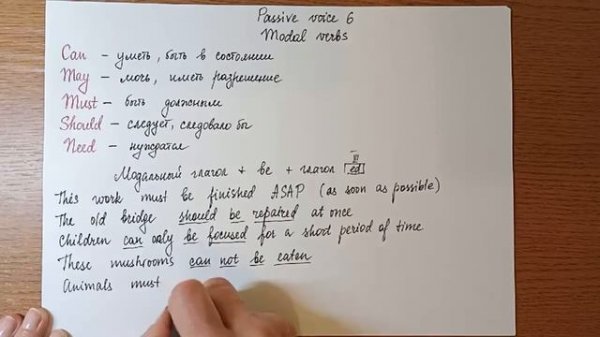 Passive voice 6
Modal verbs
Can – уметь, быть в состоянии
May – мочь, иметь разрешение
Must – быть должным
Should – следует, следовало бы
Need – нуждаться
III
Модальный глагол + be + глагол ed
This work must be finished ASAP (as soon as possible)
The old bridge should be repaired at once
Children can only be focused for a short period of time
These mushrooms can not be eaten
Animals must